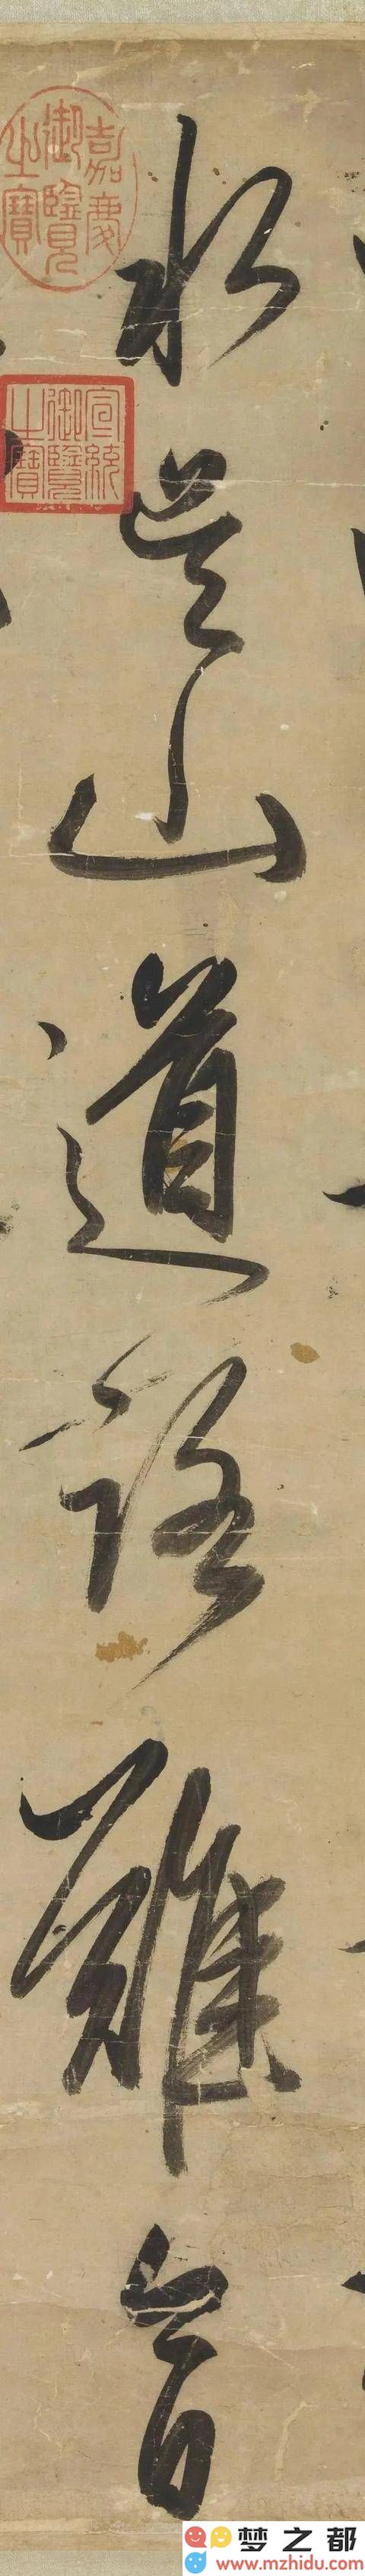 水吳山道路難今日
嘉慶御覽之寶
宣統御覽之寶
梦之都
www.mzhidu.com